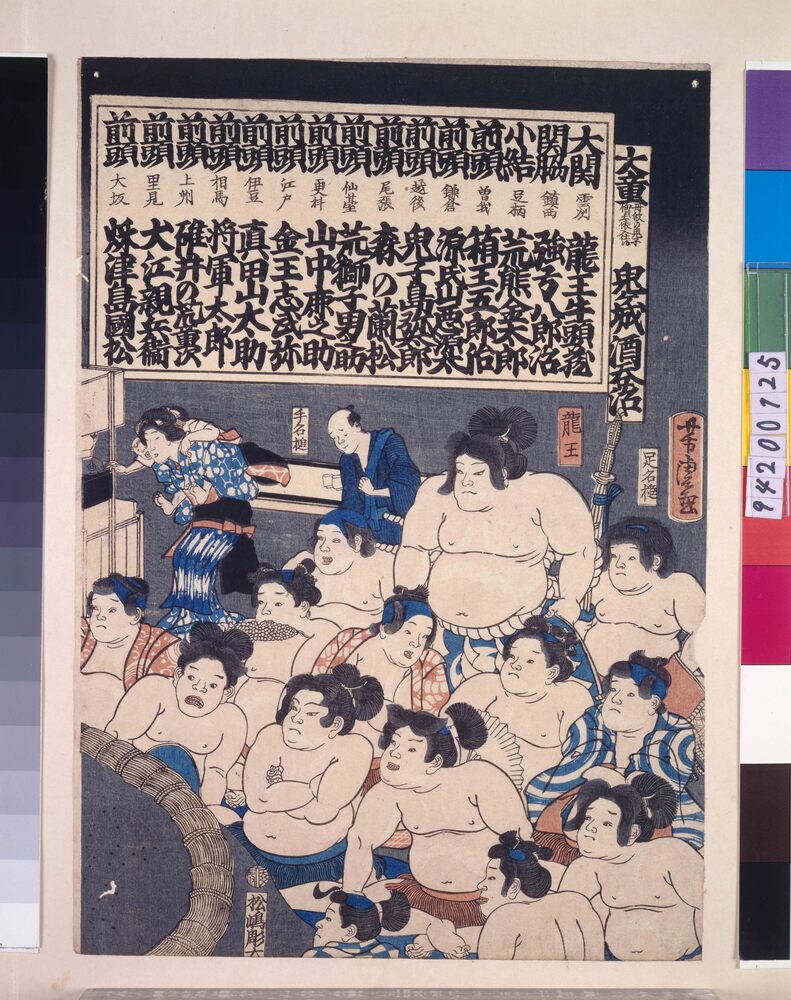 大関 雲州 龍王牛頭蔵
関脇 鎮西 強弓八郎治
小結 足柄 荒熊金太郎
前頭 曽我 箱王五郎治
前頭 鎌倉 源氏山悪源太
前頭 越後 鬼子島弥太郎
前頭 尾張 森の蘭松
前頭 仙臺 荒獅子男之助
前頭 更科 山中鹿之助
前頭 江戸 金王志武弥
前頭 伊豆 真田山大助
前頭 相馬 将軍太郎
前頭 上州 碓井の荒童
前頭 里見 犬江親兵衛
前頭 大坂 秌津島國松
手名槌
龍王
足名槌
松嶋彫
94200725